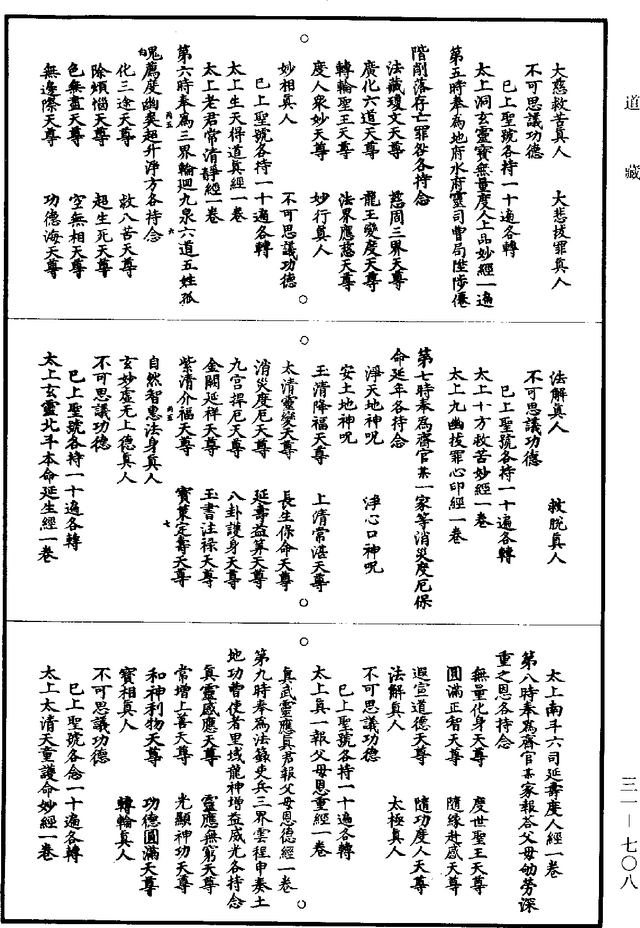 道藏
大慈救苦真人　大悲拔罪真人
不可思議功德
已上聖號各持一十遍各轉
太上洞玄靈寶無量度人上品妙經一遍
第五時奉為地府水府靈司曹局陞陟僊
階削落存亡罪咎各持念
法藏瓊文天尊　慈周三界天尊
廣化六道天尊　龍王變度天尊
轉輪聖王天尊　法界應慈天尊
度人衆妙天尊　妙行真人
妙相真人　不可思議功德
已上聖號各持一十遍各轉
太上生天得道真經一卷
太上老君常清靜經一卷
第六時奉為三界輪迴九泉六道五姓孤
魂薦度幽爽超升淨方各持念
化三途天尊　救八苦天尊
除煩惱天尊　超生死天尊
色無盡天尊　空無相天尊
無邊際天尊　功德海天尊
法解真人　救脫真人
不可思議功德
已上聖號各持一十遍各轉
太上十方救苦妙經一卷
太上九幽拔罪心印經一卷
第七時奉為齋官某一家等消災度厄保
命延年各持念
淨天地神呪　淨心口神呪
安土地神呪
玉清降福天尊　上清常湛天尊
太清靈變天尊　長生保命天尊
消災度厄天尊　延壽益算天尊
九宮捍厄天尊　八卦護身天尊
金闕延祥天尊　玉書注祿天尊
紫清介福天尊　寶菓定壽天尊
自然智惠法身真人
玄妙虛无上德真人
不可思議功德
已上聖號各持一十遍各轉
太上玄靈北斗本命延生經一卷
太上南斗六司延壽度人經一卷
第八時奉為齋官某家報答父母劬勞深
重之恩各持念
無量化身天尊　度世聖王天尊
圓滿正智天尊　隨緣赴感天尊
遐宣道德天尊　隨功度人天尊
法解真人　太極真人
不可思議功德
已上聖號各持一十遍各轉
太上真一報父母恩重經一卷
真武靈應真君報父母恩德經一卷
第九時奉為法籙吏兵三界雲程申奏土
地功曹使者里域龍神增益威光各持念
真靈感應天尊　靈應無窮天尊
常增上善天尊　光顯神功天尊
和神利物天尊　功德圓滿天尊
寶相真人　轉輪真人
不可思議功德
已上聖號各念一十遍各轉
太上太清天童護命妙經一卷
三二—七〇八